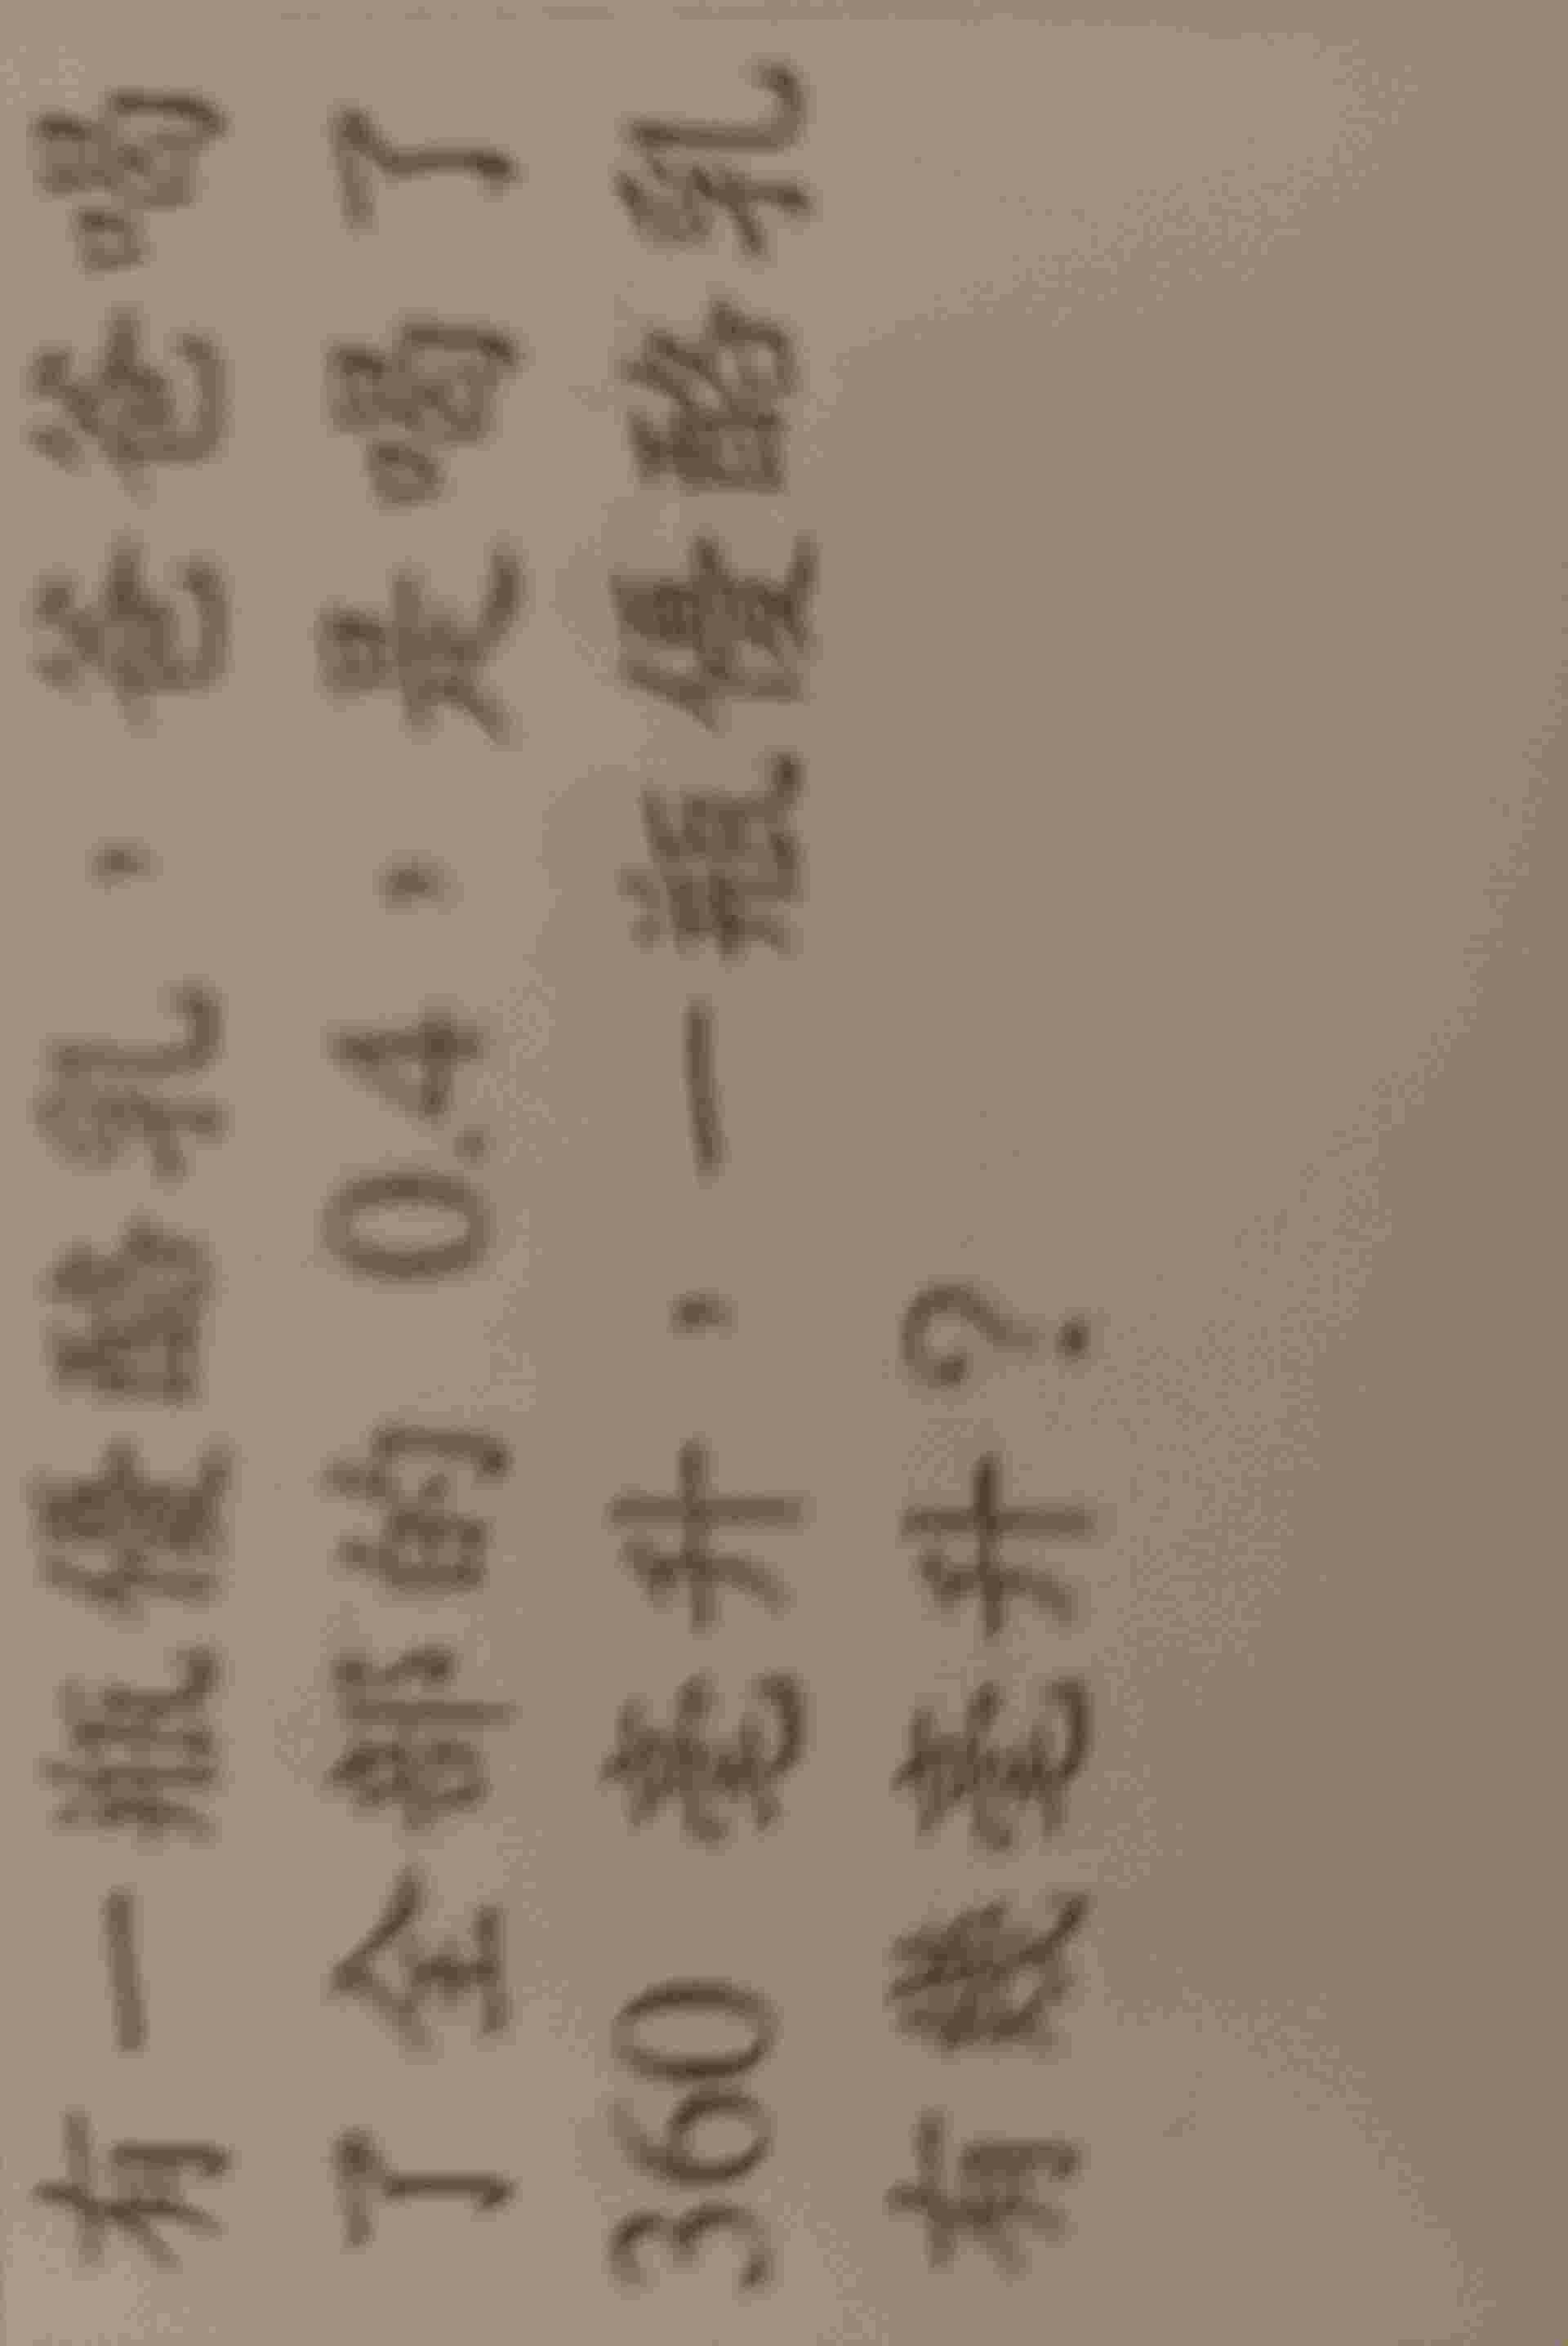 有一瓶優酪乳,爸爸喝
了全部的 0.4,哥哥喝了
360毫升,一瓶優酪乳
有幾毫升?